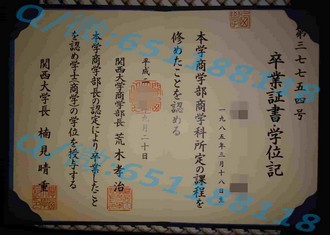 第三七七五四号
卒業証書学位記
一九八五年三月十八日生
本学商学部商学科所定の課程を
修めたことを認める
平成二 年九月二十日
関西大学商学部長 荒木孝治
本学商学部長の認定により卒業したこと
を認め学士(商学)の学位を授与する
関西大学長 楠見晴重
Q/微:651188118
Q/微:651188118